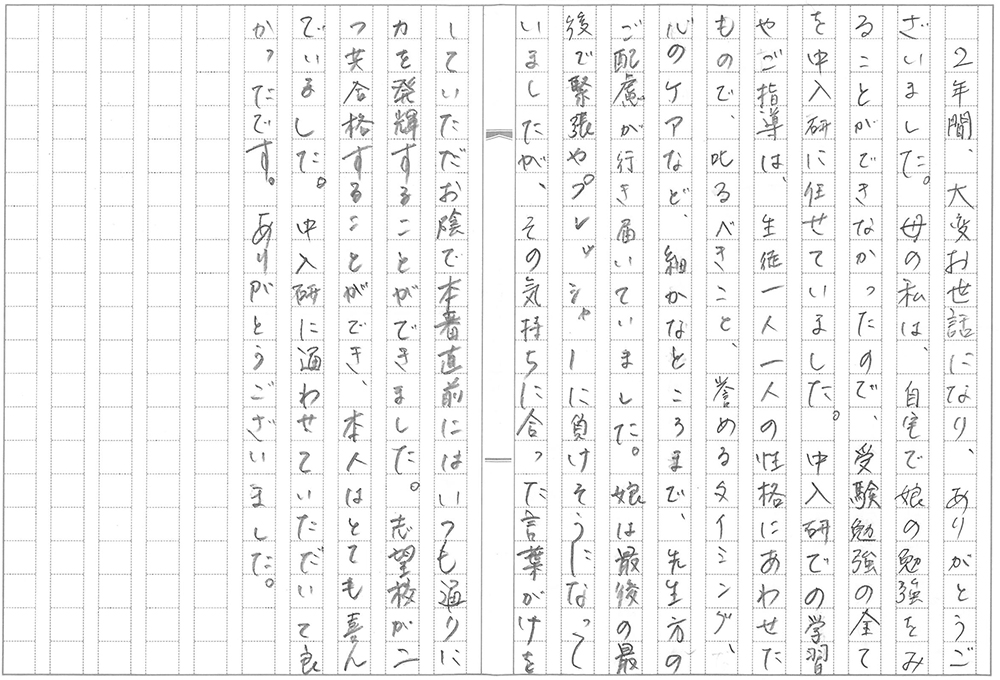 ２年間、大変お世話になり、ありがとうご
ざいました。母の私は、自宅で娘の勉強をみ
ることができなかったので、受験勉強の全て
を中入研に任せていました。中入研での学習
やご指導は、生徒一人一人の性格にあわせた
もので、叱るべきこと、誉めるタイミング、
心のケアなど、細かなところまで、先生方の
ご配慮が行き届いていました。娘は最後の最
後で緊張やプレッシャーに負けそうになって
いましたが、その気持ちに合った言葉がけを
していただお陰で本番直前にはいつも通りに
力を発揮することができました。志望校が二
つ共合格することができ、本人はとても喜ん
でいました。中入研に通わせていただいて良
かったです。ありがとうございました。